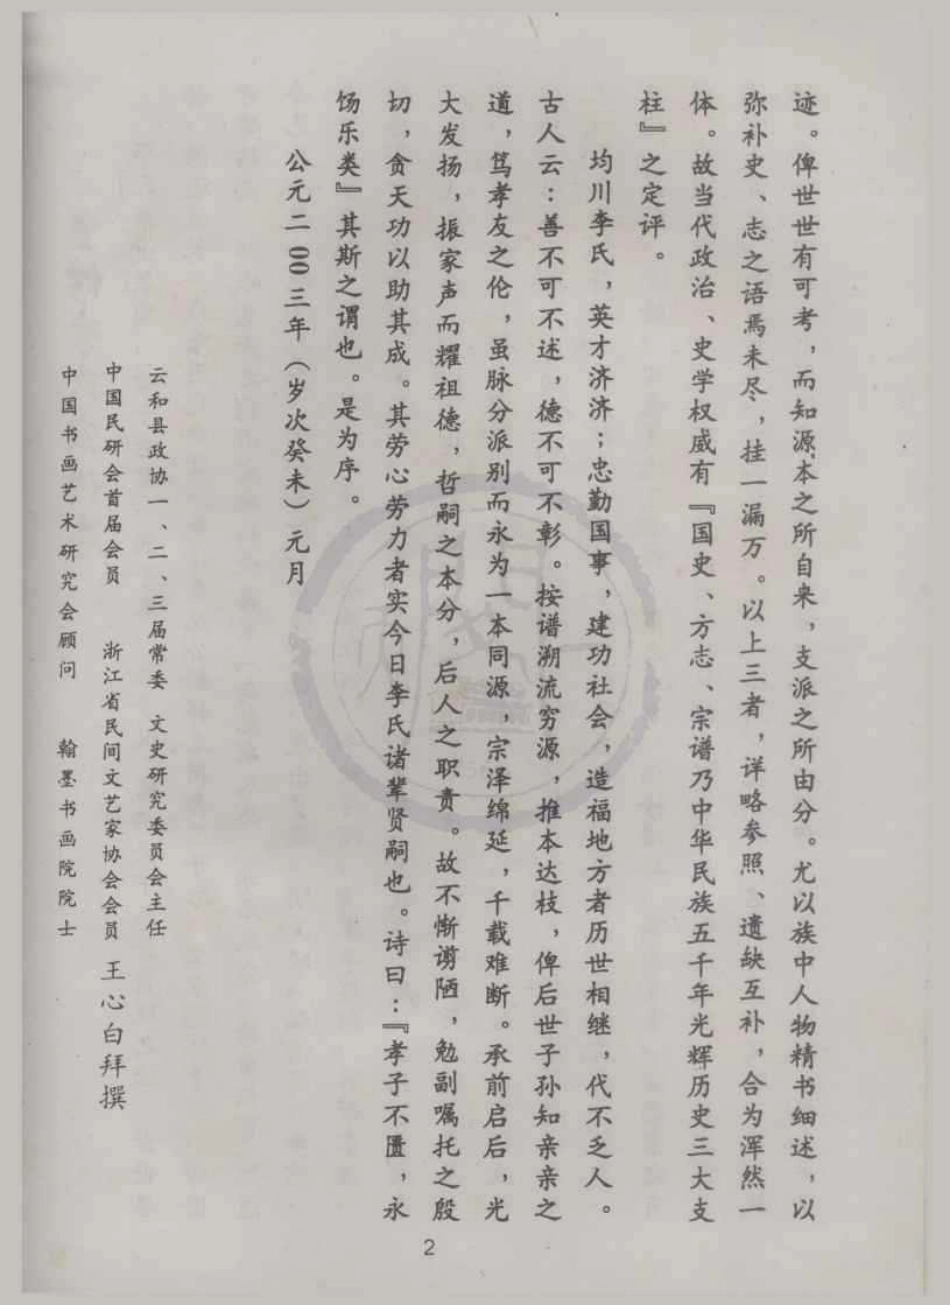 迹。俾世世有可考，而知源、本之所自来，支派之所由分。尤以族中人物精书细述，以
弥补史、志之语焉未尽，挂一漏万。以上三者，详略参照、遗缺互补，合为浑然一
体。故当代政治、史学权威有『国史、方志、宗谱乃中华民族五千年光辉历史三大支
柱』之定评。
均川李氏，英才济济；忠勤国事，建功社会，造福地方者历世相继，代不乏人。
古人云：善不可不述，德不可不彰。按谱溯流穷源，推本达枝，俾后世子孙知亲亲之
道，笃孝友之伦，虽脉分派别而永为一本同源，宗泽绵延，千载难断。承前启后，光
大发扬，振家声而耀祖德，哲嗣之本分，后人之职责。故不惭谫陋，勉副嘱托之殷
切，贪天功以助其成。其劳心劳力者实今日李氏诸辈贤嗣也。诗曰：『孝子不匮，永
饧乐类』其斯之谓也。是为序。
公元二00三年（岁次癸未）元月
云和县政协一、二、三届常委 文史研究委员会主任
中国民研会首届会员 浙江省民间文艺家协会会员 王心白拜撰
中国书画艺术研究会顾问 翰墨书画院院士
2